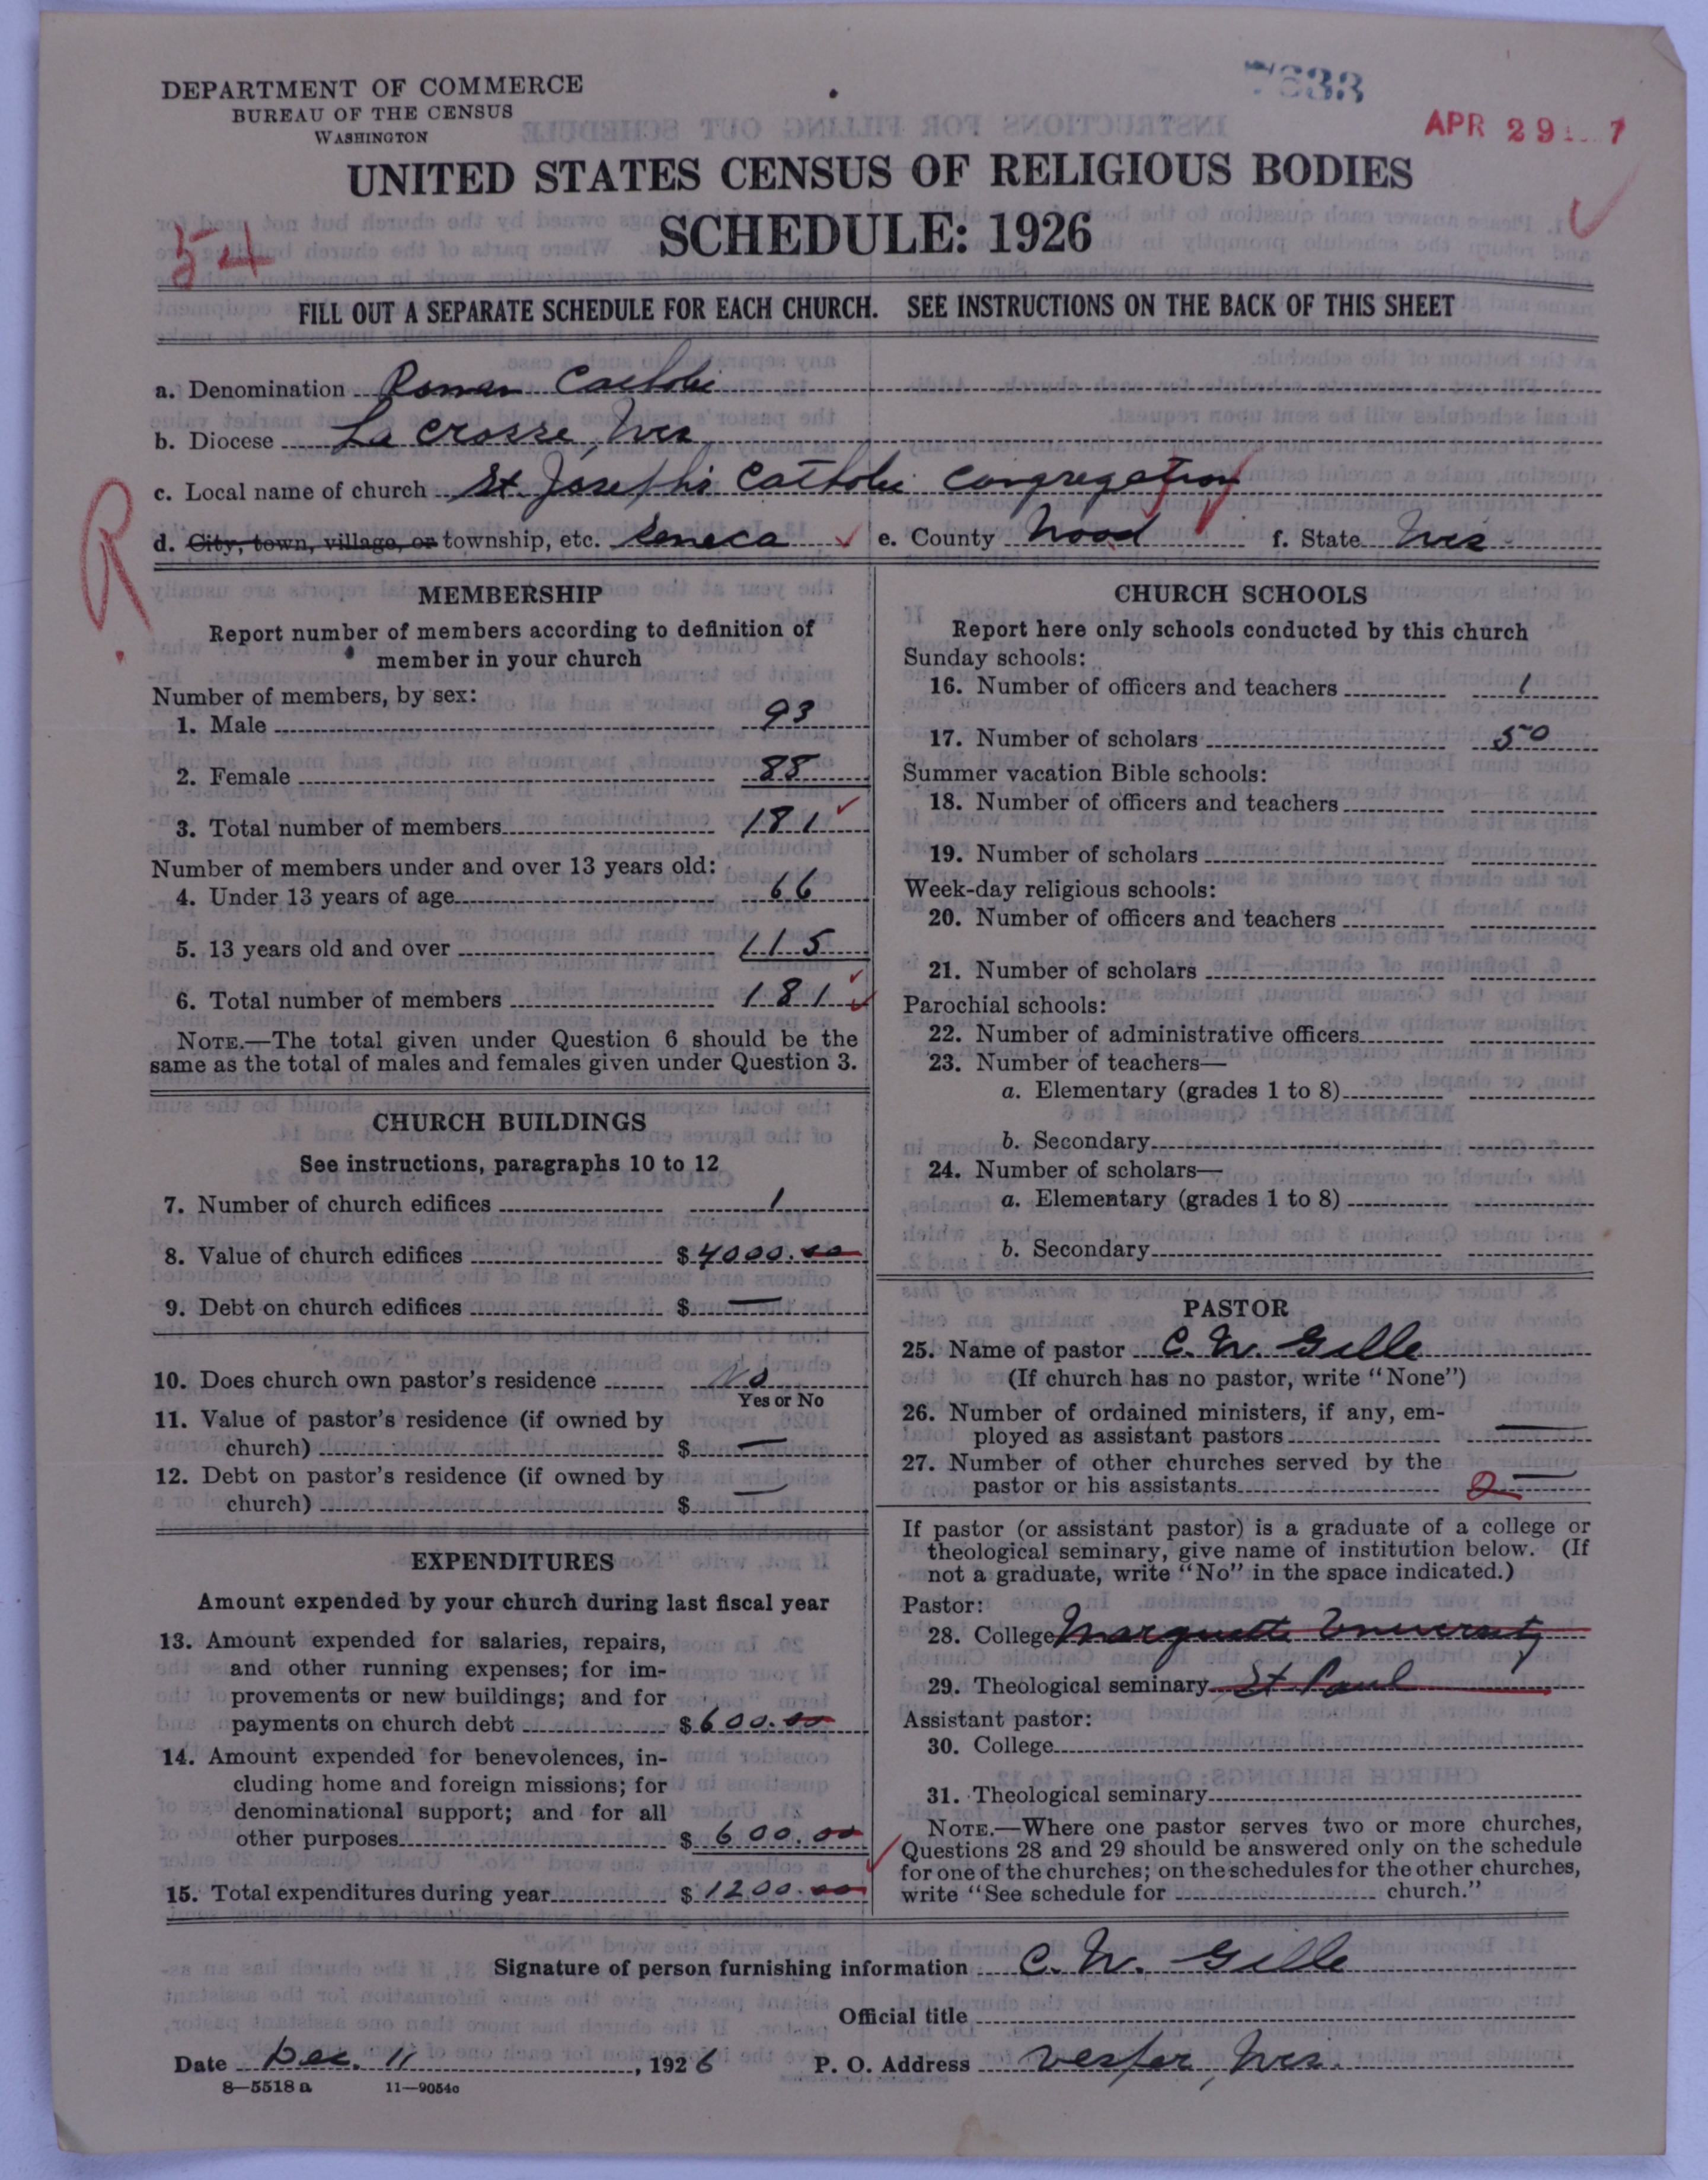 7633
APR 29 1927
DEPARTMENT OF COMMERCE
BUREAU OF THE CENSUS
WASHINGTON
UNITED STATES CENSUS OF RELIGIOUS BODIES
SCHEDULE: 1926
54
FILL OUT A SEPARATE SCHEDULE FOR EACH CHURCH. SEE INSTRUCTIONS ON THE BACK OF THIS SHEET
a. Denomination Roman Catholic
b. Diocese La Crosse, Wis
c. Local name of church St. Joseph's Catholic Congregation
d. City, town, village, or township, etc. Seneca e. County Wood f. State Wis
R.
MEMBERSHIP
Report number of members according to definition of
member in your church
Number of members, by sex:
1. Male 93
2. Female 88
3. Total number of members 181
Number of members under and over 13 years old:
4. Under 13 years of age 66
5. 13 years old and over 115
6. Total number of members 181
NOTE.—The total given under Question 6 should be the
same as the total of males and females given under Question 3.
CHURCH BUILDINGS
See instructions, paragraphs 10 to 12
7. Number of church edifices 1
8. Value of church edifices $4000.00
9. Debt on church edifices $ —
10. Does church own pastor's residence No
Yes or No
11. Value of pastor's residence (if owned by
church) $ —
12. Debt on pastor's residence (if owned by
church) $ —
EXPENDITURES
Amount expended by your church during last fiscal year
13. Amount expended for salaries, repairs,
and other running expenses; for im-
provements or new buildings; and for
payments on church debt $600.00
14. Amount expended for benevolences, in-
cluding home and foreign missions; for
denominational support; and for all
other purposes $600.00
15. Total expenditures during year $1200.00
CHURCH SCHOOLS
Report here only schools conducted by this church
Sunday schools:
16. Number of officers and teachers 1
17. Number of scholars 50
Summer vacation Bible schools:
18. Number of officers and teachers
19. Number of scholars
Week-day religious schools:
20. Number of officers and teachers
21. Number of scholars
Parochial schools:
22. Number of administrative officers
23. Number of teachers—
a. Elementary (grades 1 to 8)
b. Secondary
24. Number of scholars—
a. Elementary (grades 1 to 8)
b. Secondary
PASTOR
25. Name of pastor C. W. Gille
(If church has no pastor, write "None")
26. Number of ordained ministers, if any, em-
ployed as assistant pastors —
27. Number of other churches served by the
pastor or his assistants 2 —
If pastor (or assistant pastor) is a graduate of a college or
theological seminary, give name of institution below. (If
not a graduate, write "No" in the space indicated.)
Pastor:
28. College Marquette University
29. Theological seminary St Paul
Assistant pastor:
30. College
31. Theological seminary
NOTE.—Where one pastor serves two or more churches,
Questions 28 and 29 should be answered only on the schedule
for one of the churches; on the schedules for the other churches,
write "See schedule for church."
Signature of person furnishing information C. W. Gille
Official title
Date Dec. 11, 1926 P. O. Address Vesper, Wis.
8—5518 a 11—9054c